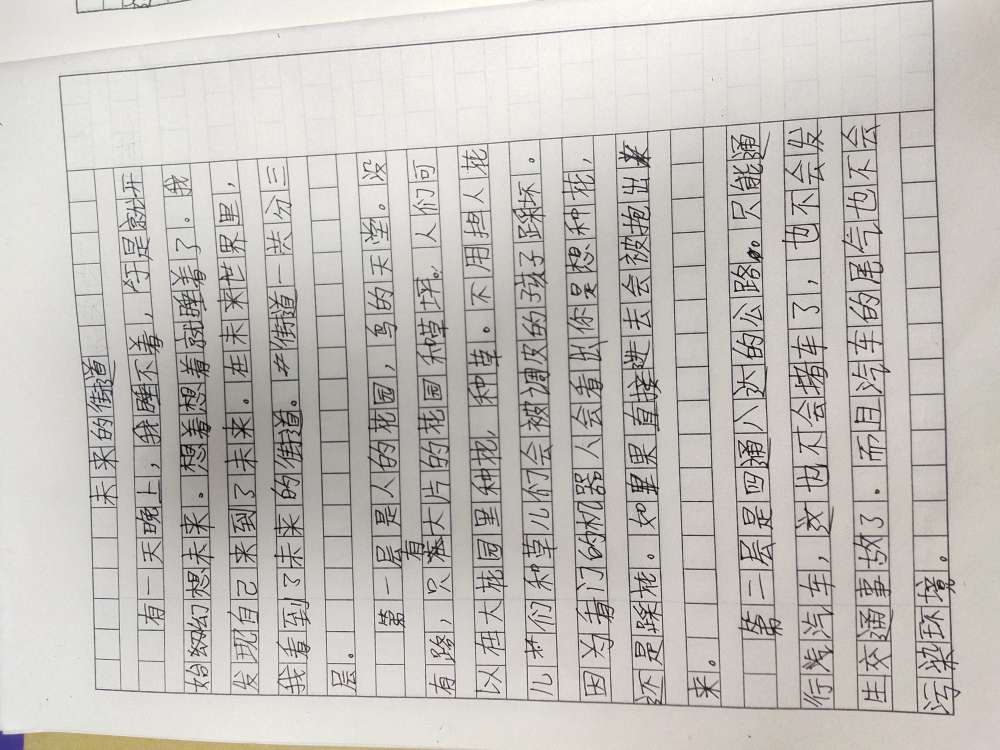 未来的街道
有一天晚上，我睡不着，于是就开
始幻想未来。想着想着就睡着了。我
发现自己来到了未来。在未来世界里，
我看到了未来的街道。街道一共分三
层。
第一层是人的花园，鸟的天堂。没
有路，只有大片的花园和草坪。人们可
以在大花园里种花，种草。不用担人花
儿们和草儿们会被调皮的孩子踩坏。
因为看门的机器人会看出你是想种花，
还是踩花。如果直接进去会被抱出来
来。
第二层是四通八达的公路。只能通
行汽车，这也不会堵车了，也不会发
生交通事故了．而且汽车的尾气也不会
污染环境。